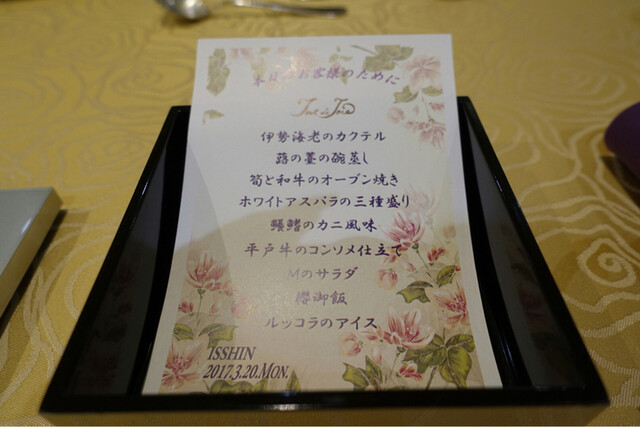 本日のお客様のために
伊勢海老のカクテル
蕗の薹の碗蒸し
筍と和牛のオーブン焼き
ホワイトアスパラの三種盛り
のカニ風味
平戸牛のコンソメ仕立て
Mのサラダ
櫻御飯
ルッコラのアイス
ISSHIN
2017.3.20.MON.